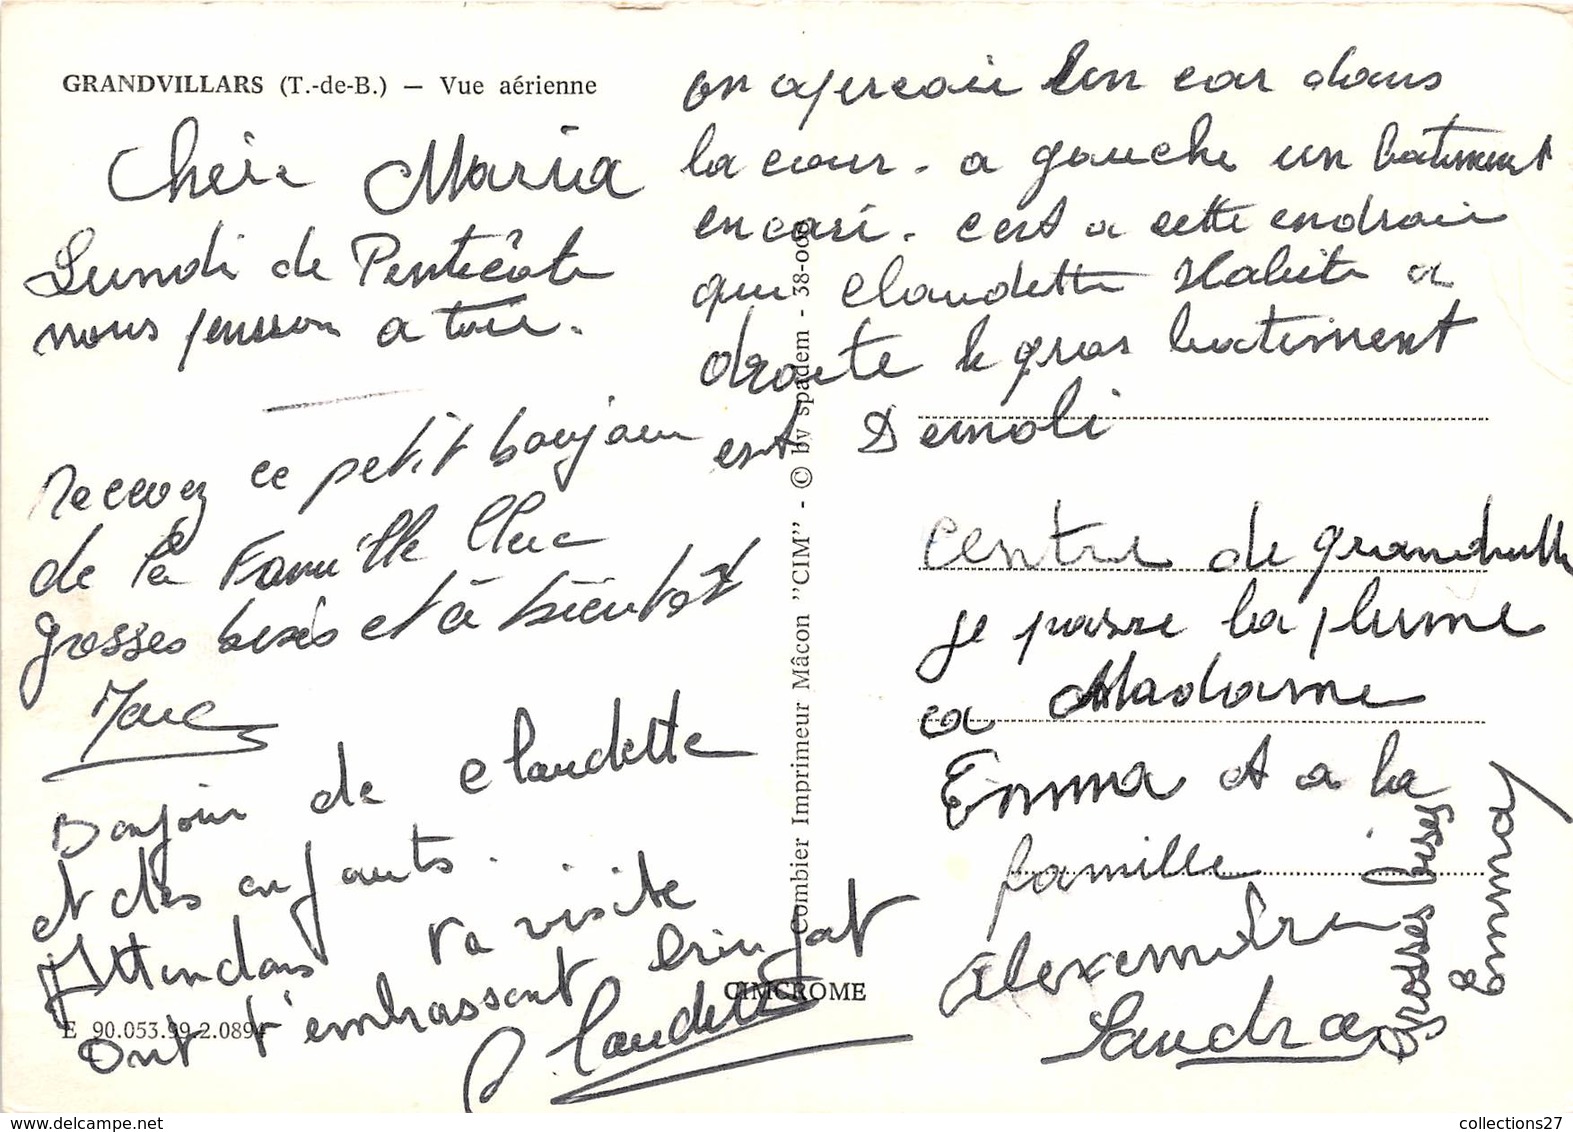 GRANDVILLARS (T.-de-B.) — Vue aérienne
Chèie Maria
Lundi de Pentecôte
nous penson a toie.
Recevez ce petit bonjour
de la Famille
grosses bises et à bientôt
Marc
Bonjour de Claudette
et des enfants.
Attendons ta visite
ont t'embrassent
Claudette
on aperçoie un car dans
la cour. a gauche un batiment
en caré. cest a cette endroie
que Claudette Habite a
droite le gros batiment
est Demoli
centre de grandvill
je passe la plume
a Madame
Emma et a la
famille
Alexendre
Sandra
grosses bises
Emma
© by spadem - 38-000
Combier Imprimeur Mâcon "CIM" -
CIMCROME
E 90.053.99.2.0894
collections27